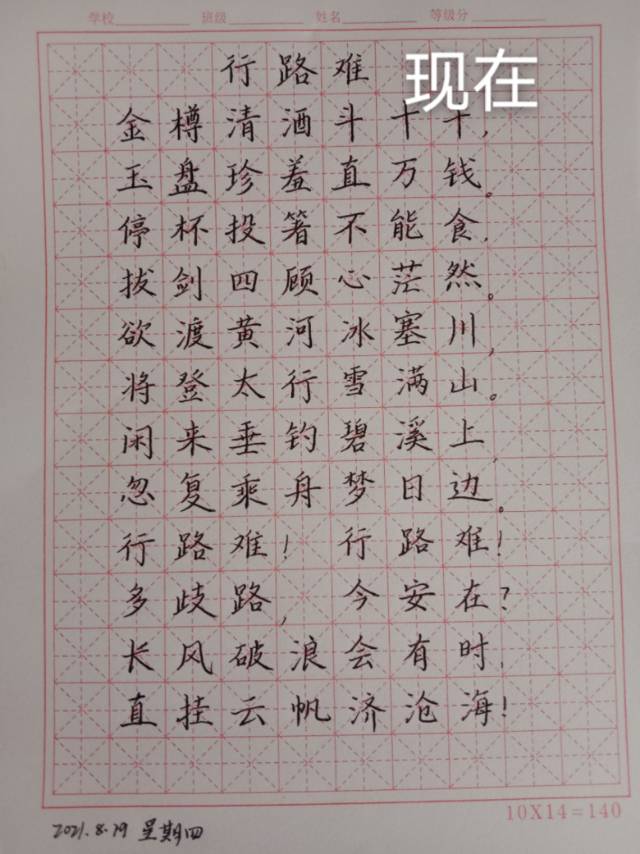 学校 班级 姓名 等级分
行路难
现在
金樽清酒斗十千,
玉盘珍羞直万钱。
停杯投箸不能食,
拔剑四顾心茫然。
欲渡黄河冰塞川,
将登太行雪满山。
闲来垂钓碧溪上,
忽复乘舟梦日边。
行路难!行路难!
多歧路,今安在?
长风破浪会有时,
直挂云帆济沧海!
10X14=140
2021.8.19 星期四